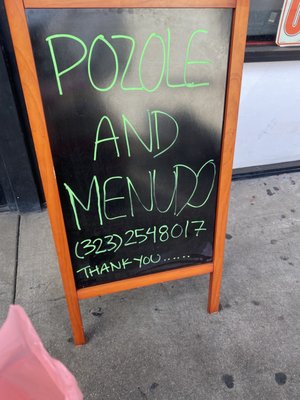 POZOLE
AND
MENUDO
(323)2548017
THANK YOU......